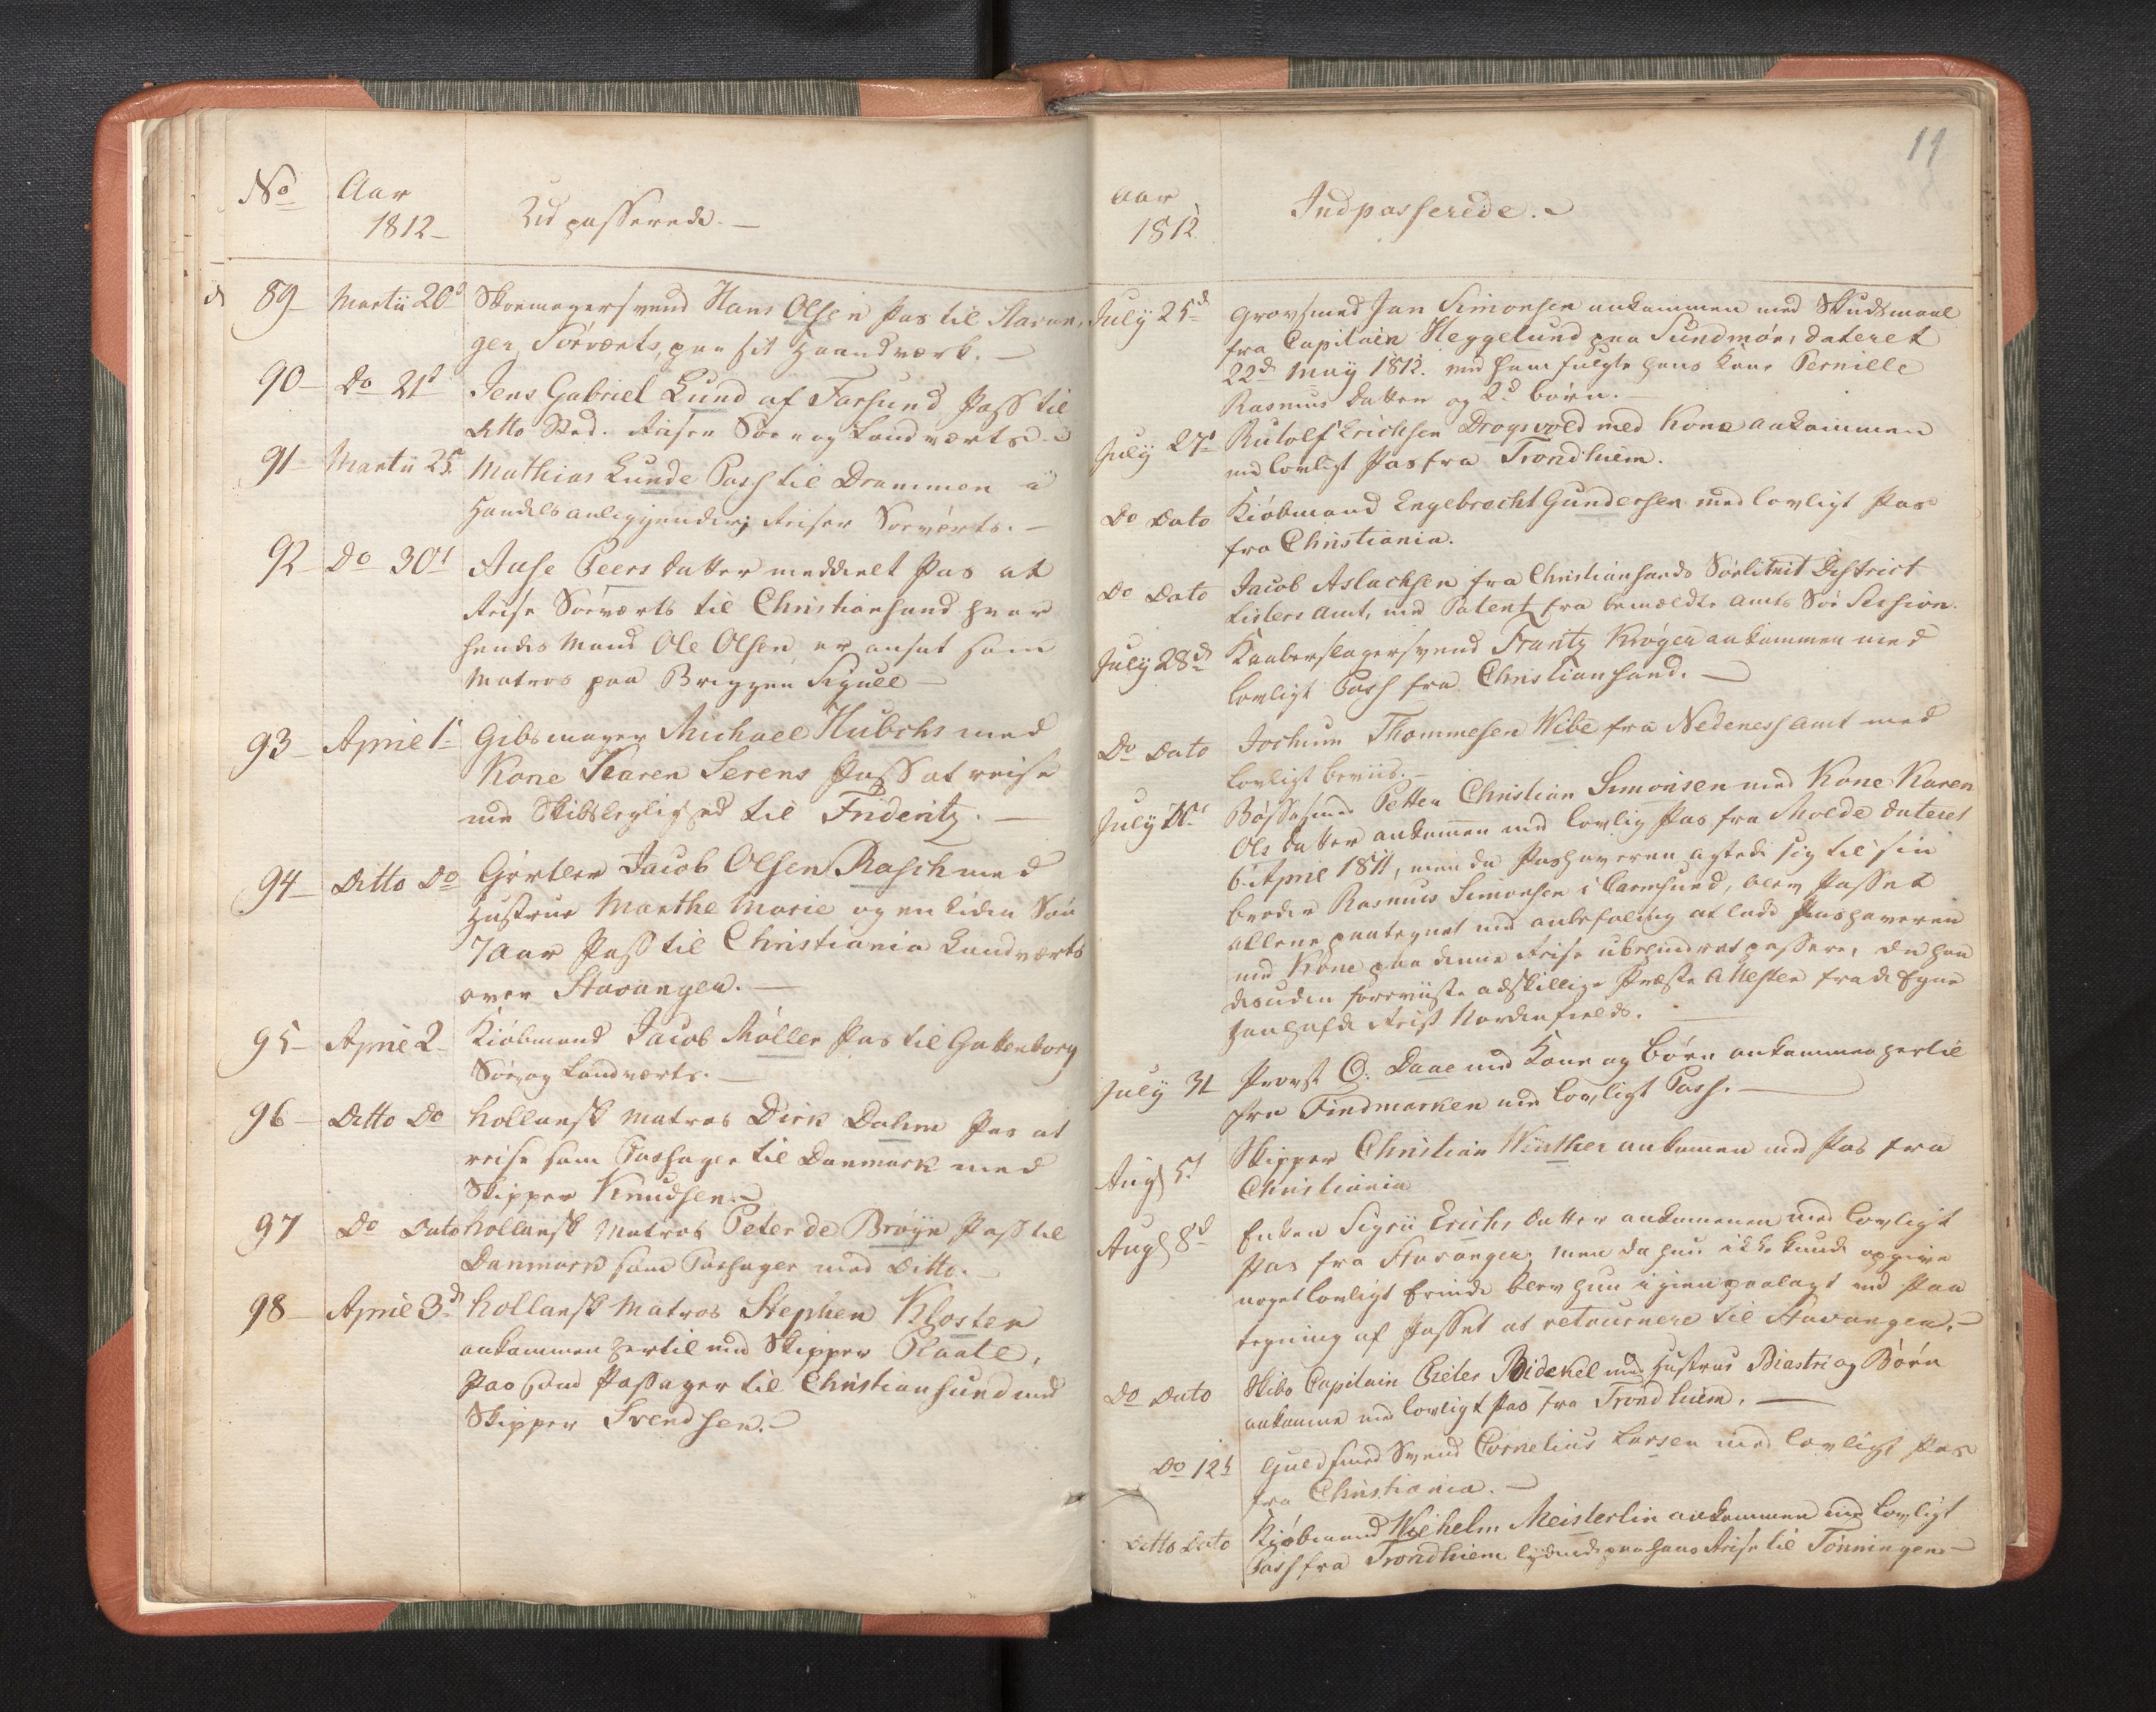 No
Aar
1812
Udpasserede.
89 Martii 20d Skoemagersvend Hans Olsen Pas til Stavan-
ger, Søeværts, paa sit Haandværk.
90 Do 21d Jens Gabriel Lund af Farsund Pass til
ditto Sted. Reiser Søe og Landværts
91 Martii 25 Mathias Lunde Pass til Drammen i
Handels anliggender; Reiser Søeværts.
92 Do 30t Aase Peers datter meddeelt Pas at
Reise Søeværts til Christiansand hvor
hendes Mand Ole Olsen er ansat som
Matros paa Briggen Seguell
93 Aprie 1 Gibsmager Michael Hubchs med
Kone Karen Serens Pass at reise
med Skibsleylighed til Frideritz.
94 Ditto Do Giørtler Jacob Olsen Rasch med
Hustrue Marthe Marie og en liden Søn
7 aar Pass til Christiania Landværts
over Stavanger.
95 Aprie 2 Kiøbmand Jacob Møller Pas til Gottenborg
Søe, og Landværts.
96 Ditto Do Hollansk Matros Dirk Dahm Pas at
reise som Passager til Danmark med
Skipper Knudsen
97 Do Dato Hollansk Matros Peter de Brøyn Pass til
Danmark som Passager med Ditto.
98 Aprie 3d Hollansk Matros Stephen Kloster
ankommen hertil med Skipper Plaate,
Pas som Passager til Christiansund med
Skipper Svendsen.
11
Aar
1812
Indpasserede.
July 25d Grovsmed Jan Simonsen ankommen med Skudsmaal
fra Capitain Heggelund paa Sundmør, dateret
22d May 1812. med ham fulgte hans Kone Pernille
Rasmus datter og 2d børn.
July 27 Rutolf Erichsen Dragsvold med Kone ankommen
med lovligt Pas fra Trondhiem.
Do Dato Kiøbmand Engebrecht Gundersen med lovligt Pas
fra Christiania.
Do Dato Jacob Aslachsen fra Christiansands District
Listers Amt, med Patent fra bemældte Amts Søe Session.
July 28d Kaaberslagersvend Frantz Krøger ankommen med
lovligt Pass fra Christiansand.
Do Dato Jochum Thommesen Wibe fra Nedeness amt med
lovligt beviis.
July Bøssesmed Petter Christian Simonsen med Kone Karen
Ols datter ankommen med lovlig Pas fra Molde dateret
6 April 1811, men da Pashaveren agtede sig til sin
broder Rasmus Simonsen i Carmsund, blev Passet
allene paategnet med anbefaling at lade Pashaveren
med Kone paa denne Reise ubehindret passere, da han
desuden foreviiste adskillige Præste Attester fra de Egne
han hafde Reist Nordenfields.
July 31 Provst O. Daae med Kone og børn ankommen hertil
fra Findmarken med lovligt Pass.
Aug 5t Skipper Christian Winther ankomen med Pas fra
Christiania
Aug 8d Enken Sigrii Erichs datter ankommen med lovligt
Pas fra Stavanger; men da hun ikke kunde opgive
noget lovligt Erinde blev hun igien paalagt ved Paa
tegning af Passet at retournere til Stavanger.
Do Dato Skibs Capitain Pieter Bidekel med Hustrue Biastri og Børn
ankomne med lovligt Pas fra Trondhiem.
Do 12t Guldsmed Svend Cornelius Larsen med lovligt Pas
fra Christiania.
Ditto Dato Kiøbmand Wilhelm Meisterlin ankommen med lovligt
Pass fra Trondhiem lydende paa hans Reise til Tønningen